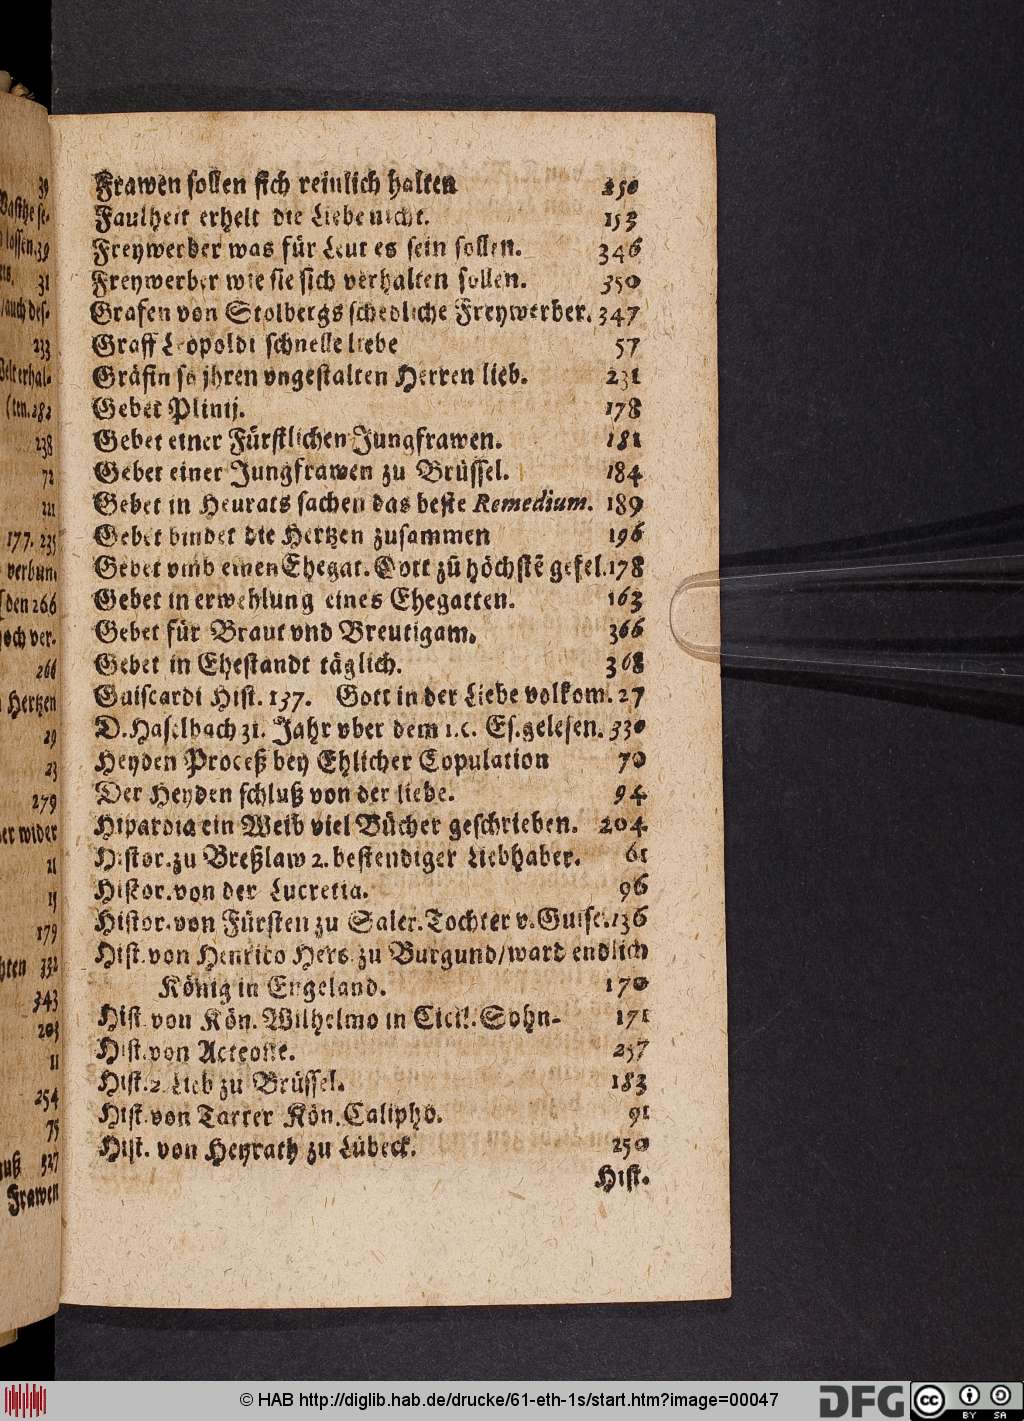 39
31
233
(ten.282
238
72
111
177. 235
verbun
den 266
och ver-
266
Hertzen
29
23
279
er wider
11
15
179
hten 332
343
205
11
254
75
327
Frawen
Frawen sollen sich reinlich halten 250
Faulheit erhelt die Liebe nicht. 153
Freywerber was für Leut es sein sollen. 346
Freywerber wie sie sich verhalten sollen. 350
Grafen von Stolbergs schedliche Freywerber. 347
Graff Leopoldi schnelle liebe 57
Gräfin so jhren vngestalten Herren lieb. 231
Gebet Plinij. 178
Gebet einer Fürstlichen Jungfrawen. 181
Gebet einer Jungfrawen zu Brüssel. 184
Gebet in Heurats sachen das beste Remedium. 189
Gebet bindet die Hertzen zusammen 196
Gebet vmb einen Ehegat. Gott zů höchstẽ gefel. 178
Gebet in erwehlung eines Ehegatten. 163
Gebet für Braut vnd Breutigam. 366
Gebet in Ehestandt täglich. 368
Guiscardi Hist. 137. Gott in der Liebe volkom. 27
D. Haselbach 31. Jahr vber dem 1. C. Es. gelesen. 330
Heyden Proceß bey Ehlicher Copulation 70
Der Heyden schluß von der liebe. 94
Hipardia ein Weib viel Bücher geschrieben. 204
Histor. zu Breßlaw 2. bestendiger Liebhaber. 61
Histor. von der Lucretia. 96
Histor. von Fürsten zu Saler. Tochter v. Guisc. 136
Hist. von Henrico Hers. zu Burgund/ward endlich
König in Engeland. 170
Hist. von Kön. Wilhelmo in Cicil. Sohn- 171
Hist. von Acteone. 257
Hist. 2. Lieb zu Brüssel. 183
Hist. von Tarter Kön. Calipho. 91
Hist. von Heyrath zu Lübeck. 250
Hist.
© HAB http://diglib.hab.de/drucke/61-eth-1s/start.htm?image=00047
DFG
cc BY SA